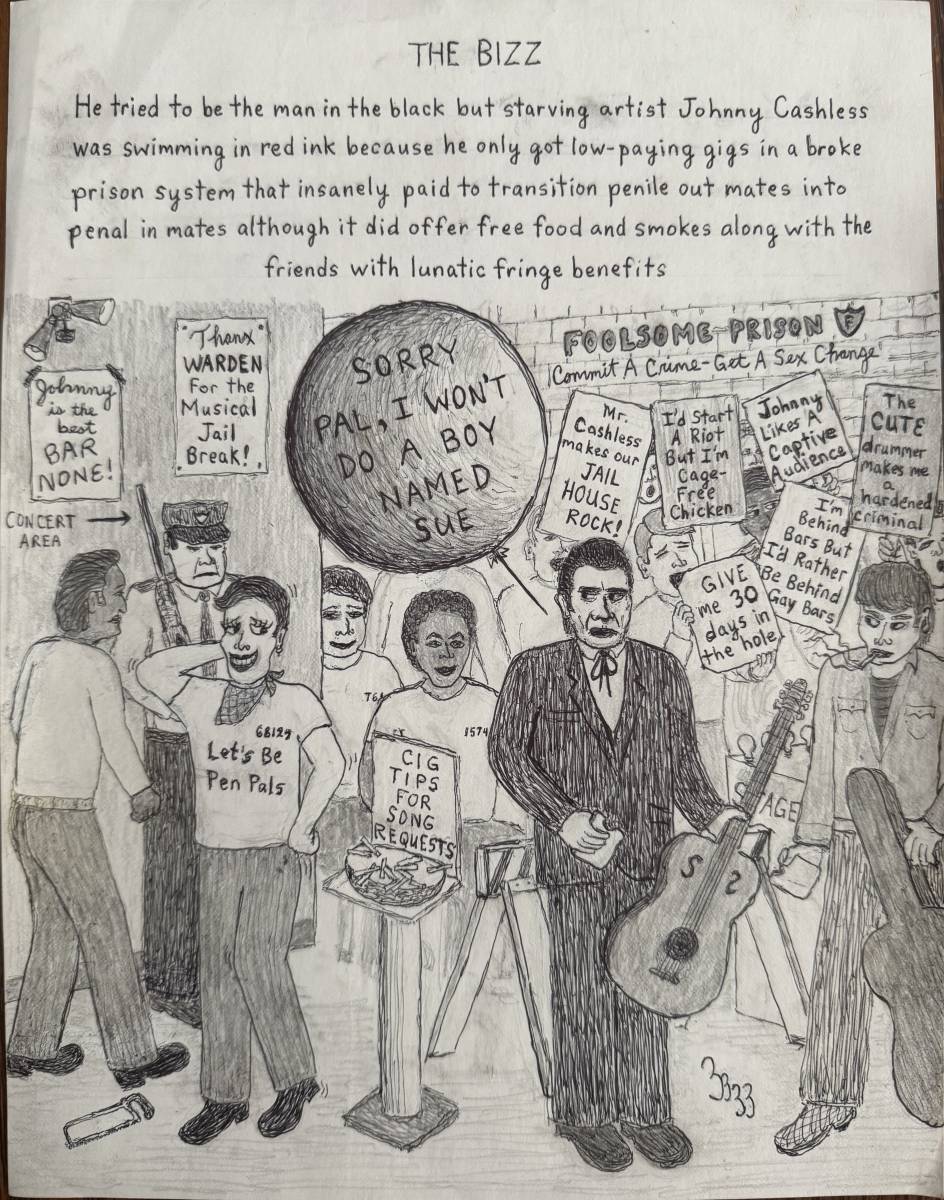 THE BIZZ
He tried to be the man in the black but starving artist Johnny Cashless
was swimming in red ink because he only got low-paying gigs in a broke
prison system that insanely paid to transition penile out mates into
penal in mates although it did offer free food and smokes along with the
friends with lunatic fringe benefits
Johnny
is the
best
BAR
NONE!
"Thanx"
WARDEN
For the
Musical
Jail
Break!
CONCERT
AREA
SORRY
PAL, I WON'T
DO A BOY
NAMED
SUE
FOOLSOME PRISON F
'Commit A Crime-Get A Sex Change'
Mr.
Cashless
makes our
JAIL
HOUSE
ROCK!
I'd Start
A Riot
But I'm
Cage-
Free
Chicken
Johnny
Likes A
Captive
Audience
The
CUTE
drummer
makes me
a
hardened
criminal
I'm
Behind
Bars But
I'd Rather
Be Behind
Gay Bars
GIVE
me 30
days in
the hole
68129
Let's Be
Pen Pals
T6
1574
CIG
TIPS
FOR
SONG
REQUESTS
AGE